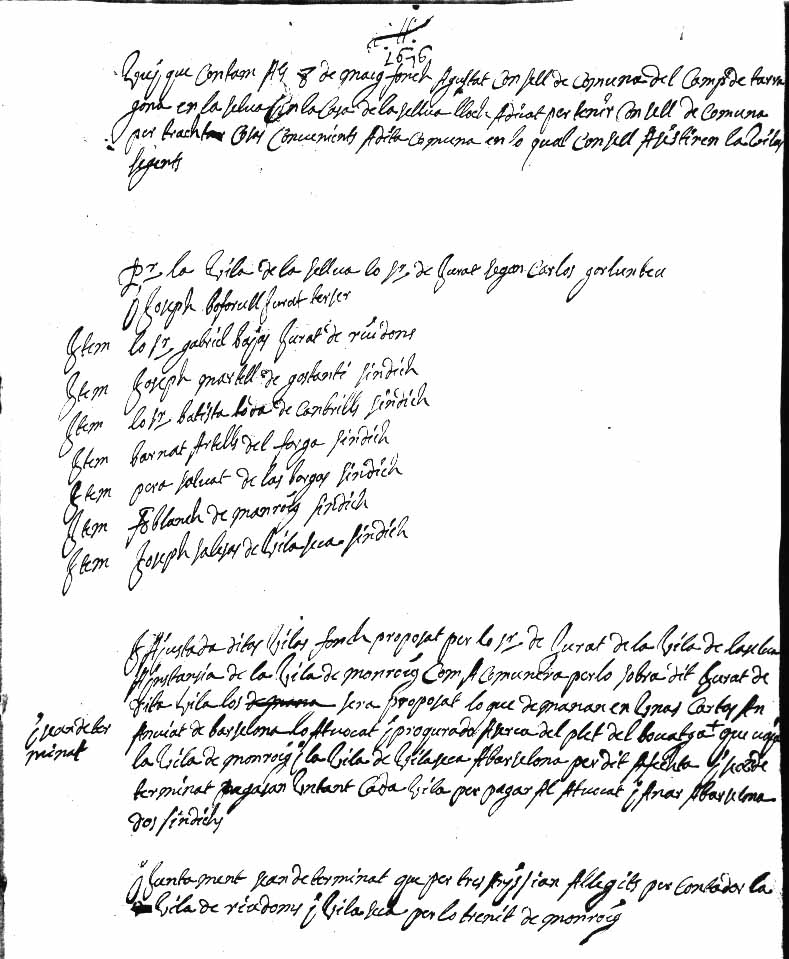 1676
Vuy que Contam Als 8 de maig fonch Agustat Consell de Comuna del Camp de tarra
gona en la selva En la Casa de la sellva lloch Adicat per tenir Consell de Comuna
per trachtar Cosas Convenients Adita Comuna en lo qual Consell Asistiren la Vilas
segents
Pr. la Vila de la sellva lo sr. de Jurat segon Carlos
y Joseph boforull Jurat terser
Item lo sr. gabriel bajas Jurat de riudoms
Item Joseph martell de gostanti sindich
Item lo sr. batista de Canbrills sindich
Item barnat Artells del forga sindich
Item pera saluat de las borgas sindich
Item blanch de monroig sindich
Item Joseph salesas de Vilaseca sindich
E Ajustada ditas Vilas fonch proposat per lo sr. de Jurat de la Vila de laselua
A instansia de la Vila de monroig Com A Comunera per lo sobra dit Jurat de
dita Vila los sera proposat lo que demanan en Unas Cartas An
Anviat de barselona lo Atvocat y progurado Aserca del plet del bouatga que
la Vila de monroig y la Vila de Vilaseca Abarselona per dit Afecta y sean de
terminat pagasan Untant Cada Vila per pagar Al Atvocat y Anar Abarselona
dos sindichs
y sean deter
minat
y Juntament sean determinat que per tres Anys sian Allegits per Contador la
Vila de riudoms y Vilaseca per lo trenit de monroig